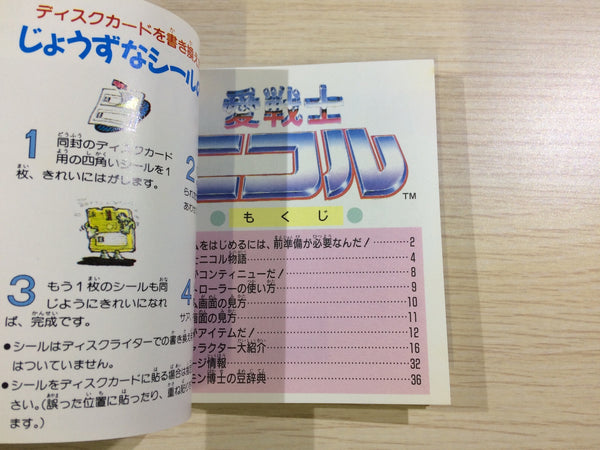 ディスクカードを書き換え
じょうずなシール
1 同封のディスクカード
用の四角いシールを1
枚、きれいにはがします。
2
3 もう1枚のシールも同
じようにきれいになれ
ば、完成です。
4
●シールはディスクライターでの書き換え
はついていません。
●シールをディスクカードに貼る場合は
さい。(誤った位置に貼ったり、重ね貼り
ます。)
愛戦士
ニコル
TM
もくじ
ムをはじめるには、前準備が必要なんだ! 2
士ニコル物語 4
がコンティニューだ! 8
トローラーの使い方 9
ム画面の見方 10
画面の見方 11
がアイテムだ! 12
ラクター大紹介 16
ージ情報 32
ミン博士の豆辞典 36